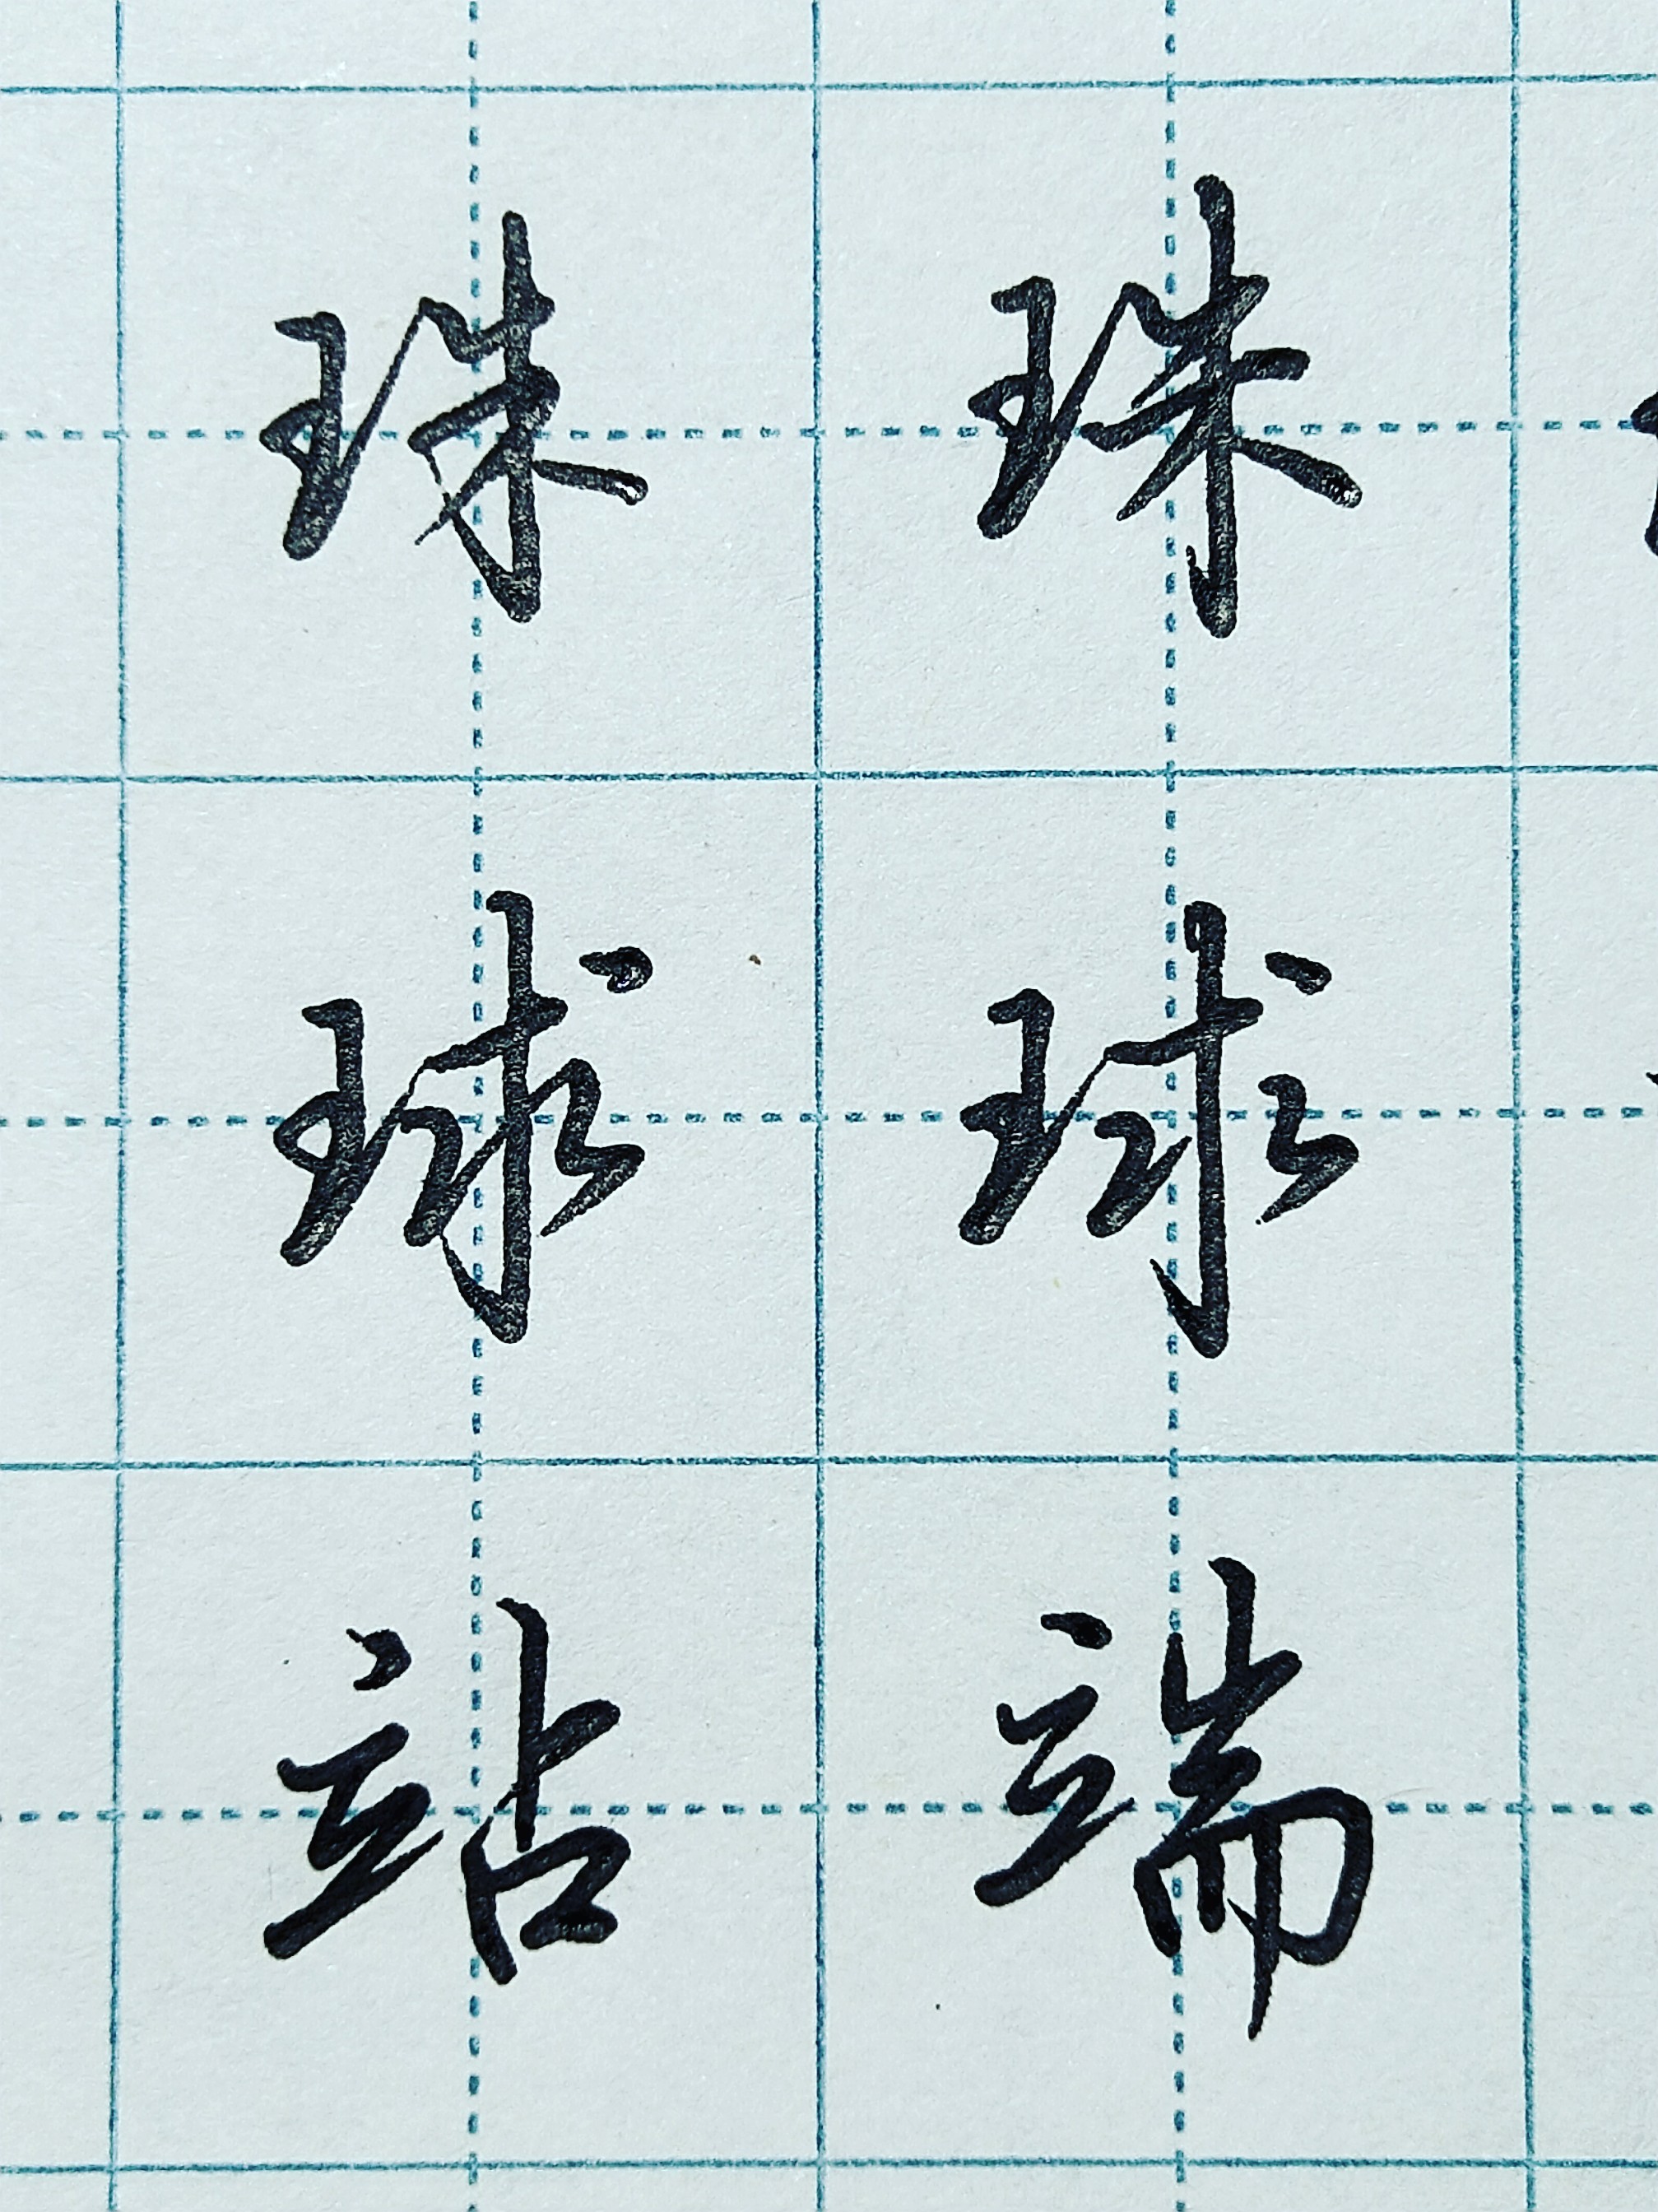 珠珠
球球
站端